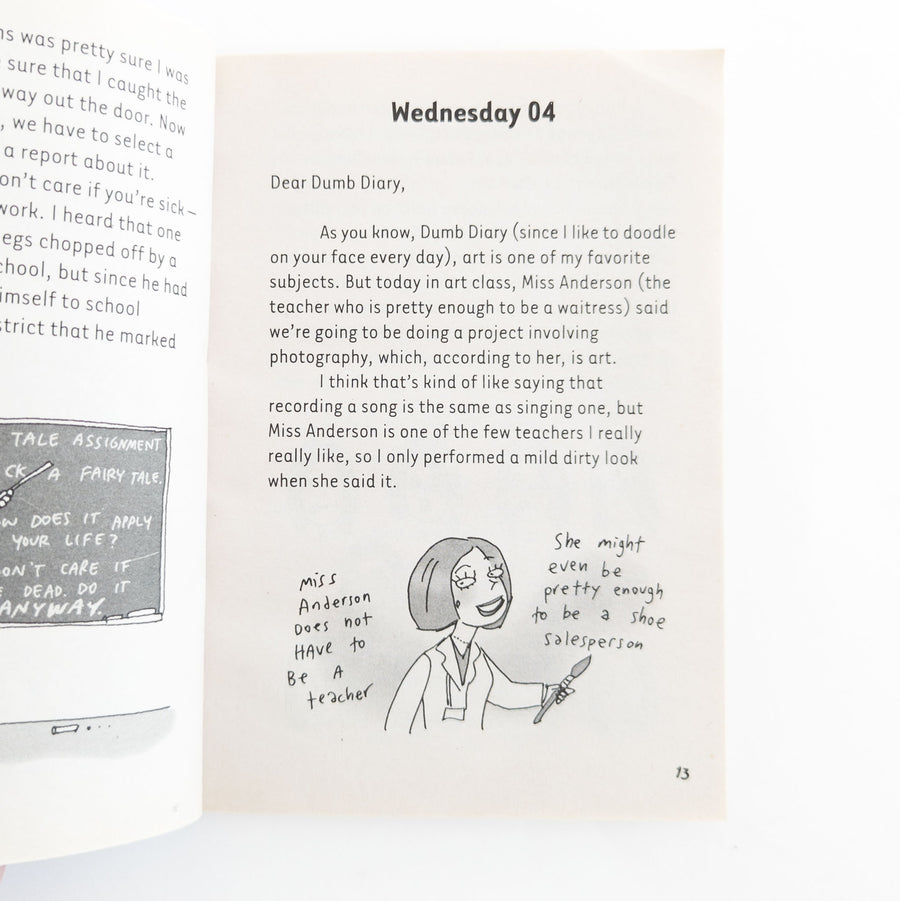 was pretty sure I was
sure that I caught the
way out the door. Now
, we have to select a
a report about it.
on't care if you're sick—
work. I heard that one
egs chopped off by a
chool, but since he had
imself to school
strict that he marked
TALE ASSIGNMENT
CK A FAIRY TALE.
OW DOES IT APPLY
YOUR LIFE?
ON'T CARE IF
DEAD. DO IT
ANYWAY.
Wednesday 04
Dear Dumb Diary,
As you know, Dumb Diary (since I like to doodle
on your face every day), art is one of my favorite
subjects. But today in art class, Miss Anderson (the
teacher who is pretty enough to be a waitress) said
we're going to be doing a project involving
photography, which, according to her, is art.
I think that's kind of like saying that
recording a song is the same as singing one, but
Miss Anderson is one of the few teachers I really
really like, so I only performed a mild dirty look
when she said it.
Miss
Anderson
Does not
HAve to
Be A
teacher
She might
even be
pretty enough
to be a shoe
salesperson
13